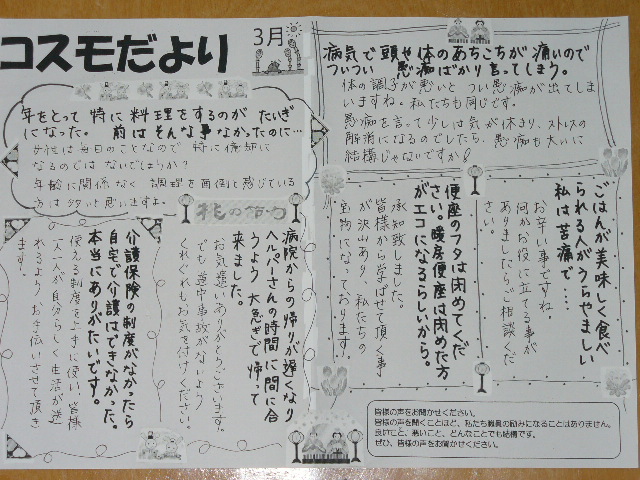 コスモだより
3月
年をとって 特に 料理をするのが たいぎ
になった。 前は そんな事 なかったのに…
女性は毎日のことなので 特に億劫に
なるのでは ないでしょうか?
年齢に関係なく 調理を面倒と感じている
方は 多いと思いますよ。
病気で頭や体のあちこちが 痛いので
ついつい 愚痴ばかり言ってしまう。
体の調子が悪いと つい愚痴が出てしま
いますね。私たちも同じです。
愚痴を言って少しは気が休まり、ストレスの
解消になるのでしたら、愚痴も大いに
結構じゃないですか!
ごはんが美味しく食べ
られる人がうらやましい
私は苦痛で…
お辛い事ですね。
何かお役に立てる事が
ありましたらご相談くだ
さい。
便座のフタは閉めてくだ
さい。暖房便座は閉めた方
がエコになるらしいから。
承知致しました。
皆様から学ばせて頂く事
が沢山あり、私たちの
宝物になっております。
桃の節句
病院からの帰りが遅くなり
ヘルパーさんの時間に間に合
うよう 大急ぎで帰って
来ました。
お気遣いありがとうございます。
でも 途中事故がないよう
くれぐれもお気を付けください。
介護保険の制度がなかったら
自宅で介護はできなかった。
本当にありがたいです。
使える制度を上手に使い、皆様
一人一人が自分らしく生活が送
れるよう、お手伝いさせて頂き
ます。
皆様の声をお聞かせください。
皆様の声を聞くことほど、私たち職員の励みになることはありません。
良いこと、悪いこと、どんなことでも結構です。
ぜひ、皆様の声をお聞かせください。